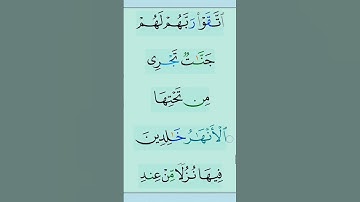 ٱتَّقَوْا۟ رَبَّهُمْ لَهُمْ
جَنَّـٰتٌ تَجْرِى
مِن تَحْتِهَا
ٱلْأَنْهَـٰرُ خَـٰلِدِينَ
فِيهَا نُزُلًا مِّنْ عِندِ